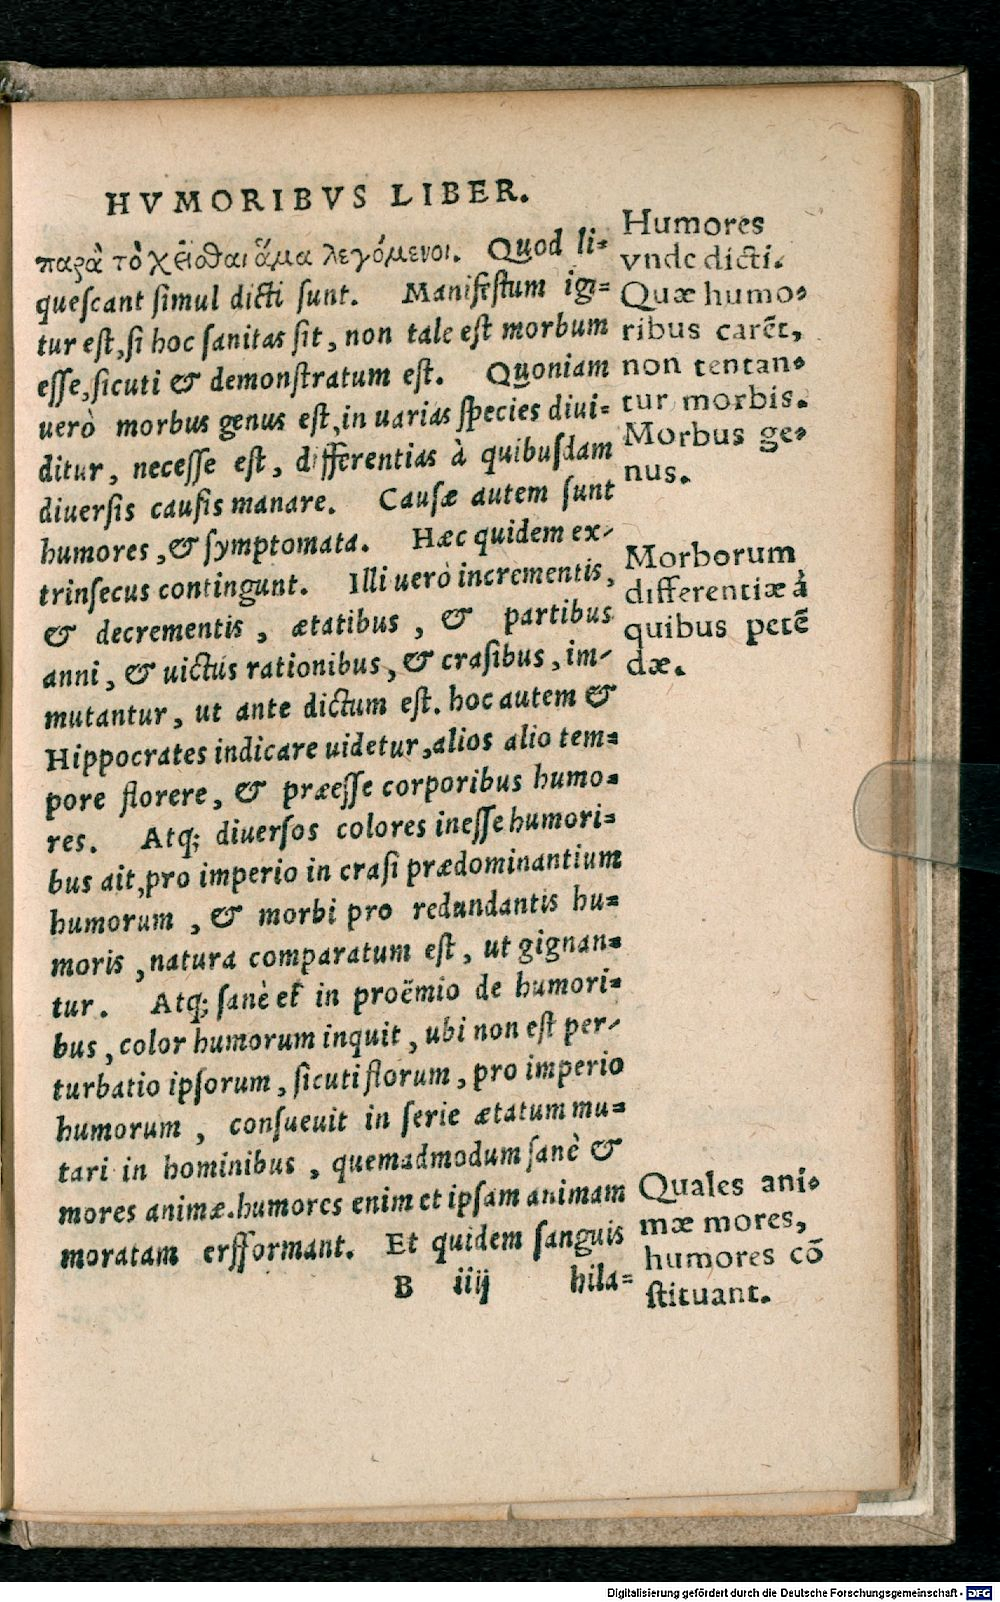 HVMORIBVS LIBER.
παρὰ τὸ χεῖσθαι ἅμα λεγόμενοι. Quod li-
queſcant ſimul dicti ſunt. Manifeſtum igi-
tur eſt, ſi hoc ſanitas ſit, non tale eſt morbum
eſſe, ſicuti & demonſtratum eſt. Quoniam
uerò morbus genus eſt, in uarias ſpecies diui-
ditur, neceſſe eſt, differentias à quibuſdam
diuerſis cauſis manare. Cauſæ autem ſunt
humores, & ſymptomata. Hæc quidem ex-
trinſecus contingunt. Illi uerò incrementis,
& decrementis, ætatibus, & partibus
anni, & uictus rationibus, & craſibus, im-
mutantur, ut ante dictum eſt. hoc autem &
Hippocrates indicare uidetur, alios alio tem-
pore florere, & præeſſe corporibus humo-
res. Atq; diuerſos colores ineſſe humori-
bus ait, pro imperio in craſi prædominantium
humorum, & morbi pro redundantis hu-
moris, natura comparatum eſt, ut gignan-
tur. Atq; ſanè et in proëmio de humori-
bus, color humorum inquit, ubi non eſt per-
turbatio ipſorum, ſicuti florum, pro imperio
humorum, conſueuit in ſerie ætatum mu-
tari in hominibus, quemadmodum ſanè &
mores animæ. humores enim et ipſam animam
moratam erfformant. Et quidem ſanguis
B iiij hila-
Humores
vnde dicti.
Quæ humo-
ribus carẽt,
non tentan-
tur morbis.
Morbus ge-
nus.
Morborum
differentiæ à
quibus petẽ
dæ.
Quales ani-
mæ mores,
humores cõ
ſtituant.
Digitalisierung gefördert durch die Deutsche Forschungsgemeinschaft - DFG